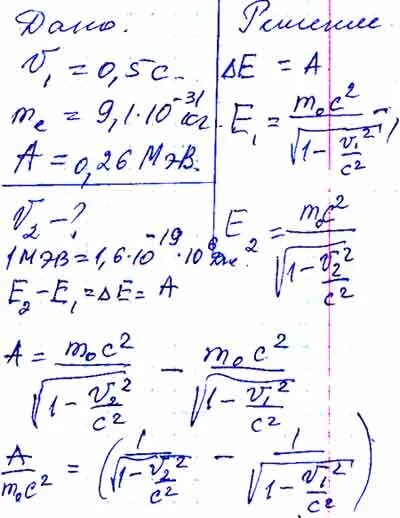 Дано.
v₁ = 0,5c.
mₑ = 9,1·10⁻³¹ кг.
A = 0,26 МэВ.
v₂ - ?
1МэВ = 1,6·10⁻¹⁹·10⁶ Дж.
E₂ - E₁ = ΔE = A
Решение
ΔE = A
E₁ = m₀c² / √(1 - v₁²/c²) ,
E₂ = m₀c² / √(1 - v₂²/c²)
A = m₀c² / √(1 - v₂²/c²) - m₀c² / √(1 - v₁²/c²)
A / m₀c² = (1 / √(1 - v₂²/c²) - 1 / √(1 - v₁²/c²))